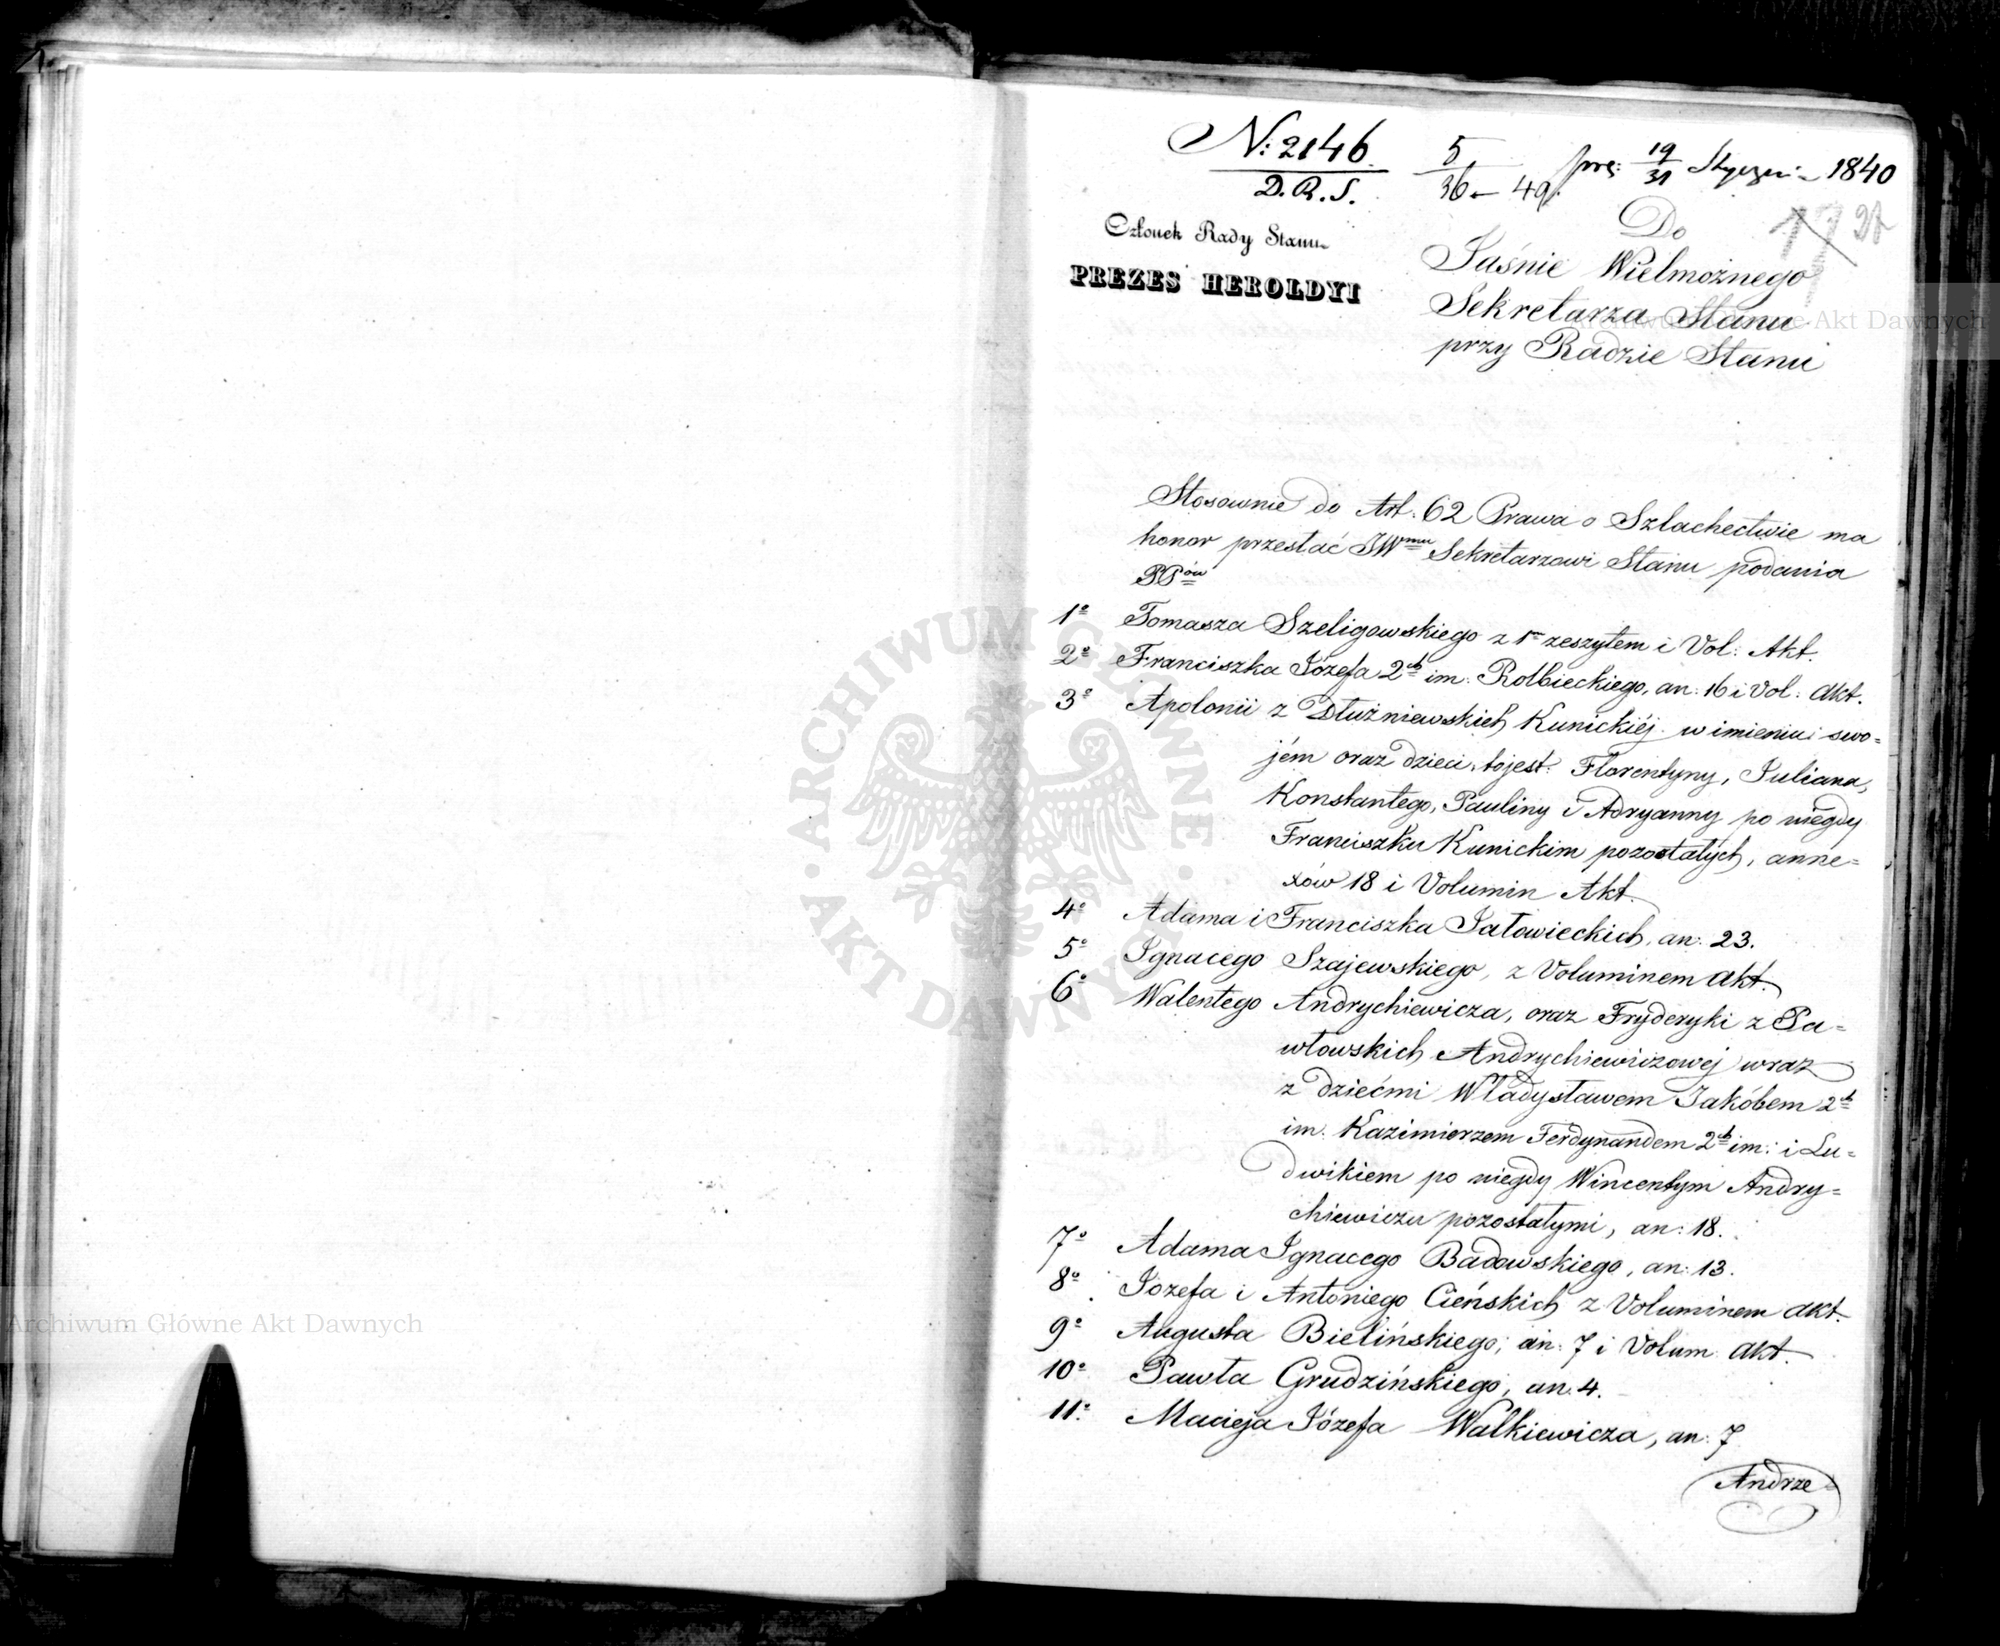 N: 2146
D.R.S.
5
36 – 49.
pręs: 19/31 Stycznia 1840
Członek Rady Stanu
PREZES HEROLDYI
Do
Jaśnie Wielmożnego
Sekretarza Stanu
przy Radzie Stanu
Stosownie do Art. 62 Prawa o Szlachectwie ma
honor przesłać JWmu Sekretarzowi Stanu podania
PPów
1o Tomasza Szeligowskiego z 1m zeszytem i Vol: Akt.
2o Franciszka Józefa 2ch im: Rolbieckiego, an: 16 i Vol: Akt.
3o Apolonii z Dłużniewskich Kunickiéj w imieniu swo=
jém oraz dzieci, tojest: Florentyny, Juliana,
Konstantego, Pauliny i Adryanny po niegdy
Franciszku Kunickim pozostałych, anne=
xów 18 i Volumin Akt.
4o Adama i Franciszka Jałowieckich, an: 23.
5o Ignacego Szajewskiego, z Voluminem Akt.
6o Walentego Andrychiewicza, oraz Fryderyki z Pa=
włowskich Andrychiewiczowej wraz
z dziećmi Władysławem Jakóbem 2ch
im. Kazimierzem Ferdynandem 2ch im: i Lu=
dwikiem po niegdy Wincentym Andry=
chiewiczu pozostałymi, an: 18.
7o Adama Ignacego Badowskiego, an: 13.
8o Józefa i Antoniego Cieńskich z Voluminem Akt.
9o Augusta Bielińskiego, an: 7 i Volum: Akt.
10o Pawła Grudzińskiego, an. 4.
11o Macieja Józefa Walkiewicza, an: 7
Andrze=
ARCHIWUM GŁÓWNE AKT DAWNYCH
Archiwum Główne Akt Dawnych
Archiwum Główne Akt Dawnych